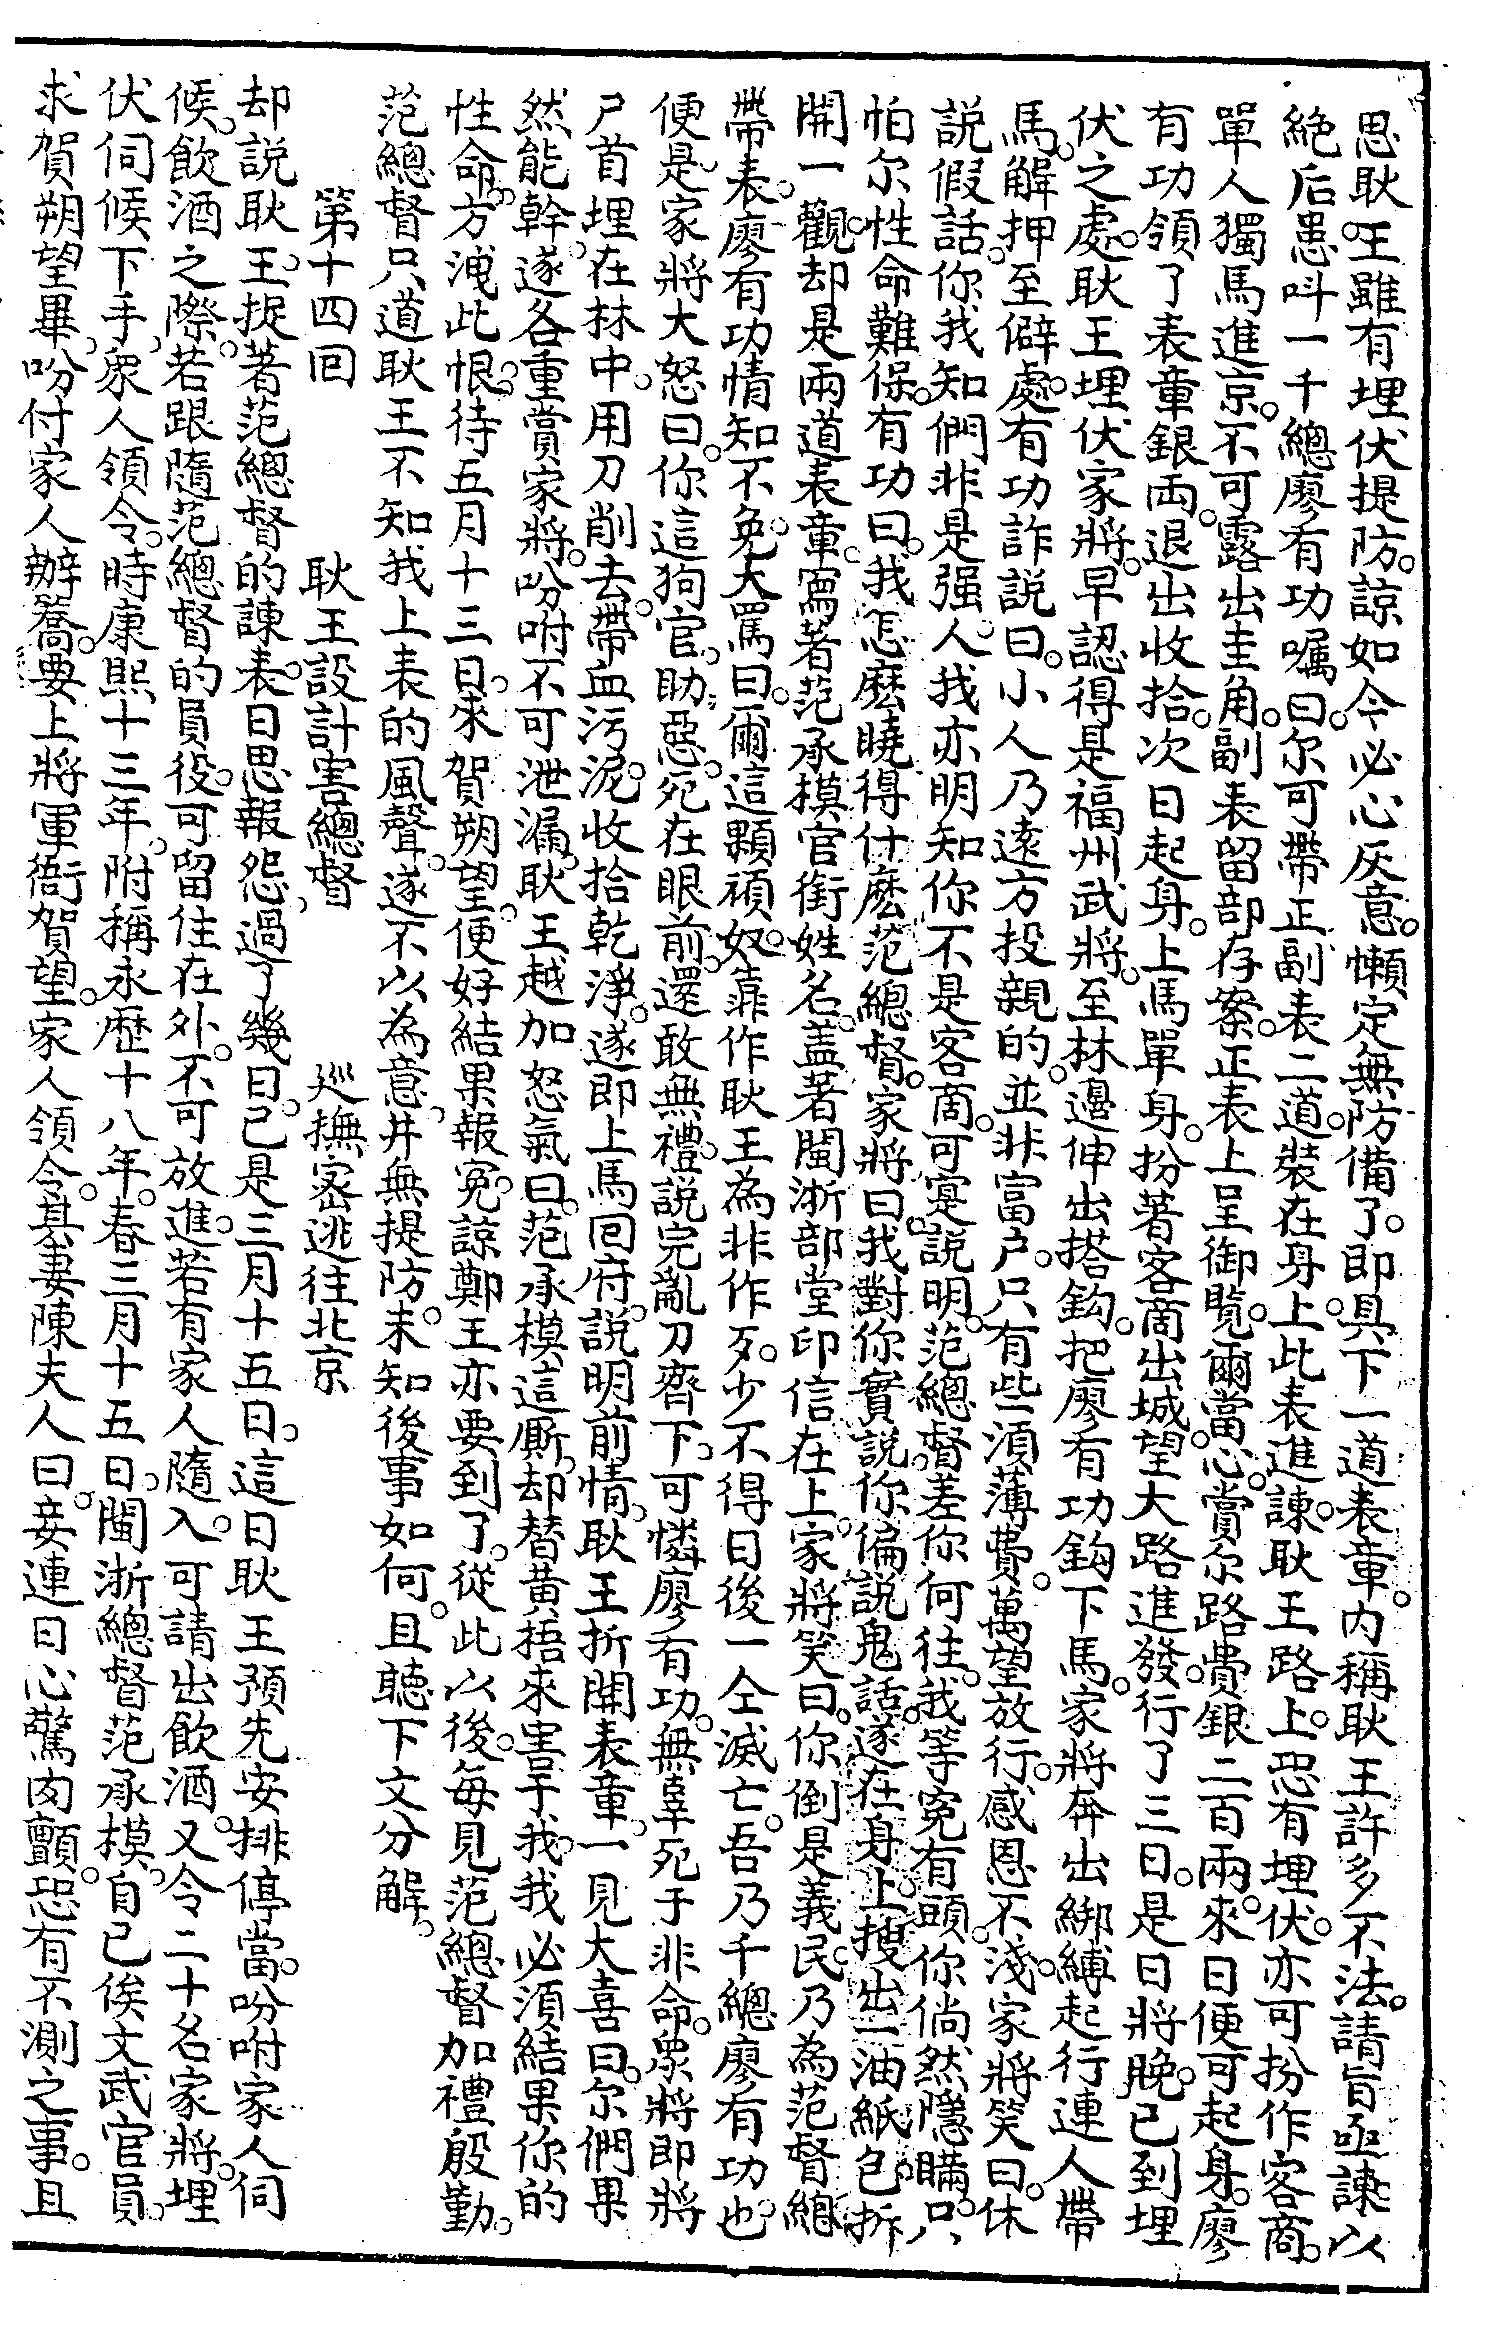 思耿王雖有埋伏提防。諒如今必心灰意。懶定無防備了。即具下一道表章。內稱耿王許多不法。請旨亟誅以
絶后患。呌一千總廖有功囑曰。尔可帶正副表二道。裝在身上。此表進諫。耿王路上。恐有埋伏。亦可扮作客商。
單人獨馬進京。不可露出圭角。副表留部存案。正表上呈御覽。爾當心。賞尔路費銀二百兩。來日便可起身。廖
有功領了表章銀両。退出收拾。次日起身。上馬單身。扮著客商出城。望大路進發。行了三日。是日將晚。已到埋
伏之處。耿王埋伏家將。早認得是福州武將。至林邊伸出搭鈎。把廖有功鈎下馬。家將奔出綁縛起行連人帶
馬。解押至僻處。有功詐説曰。小人乃遠方投親的。並非富户。只有些須薄費。萬望放行。感恩不淺。家將笑曰。休
説假話。你我知們非是强人。我亦明知你不是客商。可寔說明。范總督差你何往。我等寃有頭。你倘然隱瞞。只
怕尔性命難保。有功曰。我怎麽曉得什麽范總督。家將曰。我對你實説。你偏説鬼話。遂在身上。搜出一油紙包。拆
開一觀。却是兩道表章。寫著范承模官銜姓名。盖著閩浙部堂印信在上。家將笑曰。你倒是義民。乃為范督總
帶表。廖有功情知不免。大罵曰。爾這顆頑奴。靠作耿王為非作歹。少不得日後一仝滅亡。吾乃千總廖有功也。
便是。家將大怒曰。你這狗官。助惡。死在眼前。還敢無禮。説完亂刀齊下。可憐廖有功。無辜死于非命。眾將即將
尸首埋在林中。用刀削去。帶血污泥。收拾乾淨。遂即上馬回府。説明前情。耿王折開表章。一見大喜曰。尔們果
然能幹。遂各重賞家將。吩咐不可泄漏。耿王越加怒氣曰。范承模這厮。却替黄梧來害于我。我必須結果你的
性命。方洩此恨。待五月十三日。來賀朔望。便好結果報寃。諒鄭王亦要到了。從此以後。每見范總督加禮殷勤。
范總督只道耿王不知我上表的風聲。遂不以為意。并無提防。未知後事如何。且聽下文分解。
第十四回　耿王設計害總督　廵撫宻逃往北京
却説耿王。捉著范總督的諫表。日思報怨。過了幾日。已是三月十五日。這日耿王預先安排停當。吩咐家人伺
候。飲酒之際。若跟隨范總督的員役。可留住在外。不可放進。若有家人隨入。可請出飲酒。又令二十名家將。埋
伏伺候下手。眾人領令。時康熙十三年。附稱永歷十八年。春三月十五日。閩浙總督范承模。自已俟文武官員。
求賀朔望畢。吩付家人辦籌。要上將軍衙賀望。家人領令。其妻陳夫人曰。妾連日心驚肉顫。恐有不測之事。且